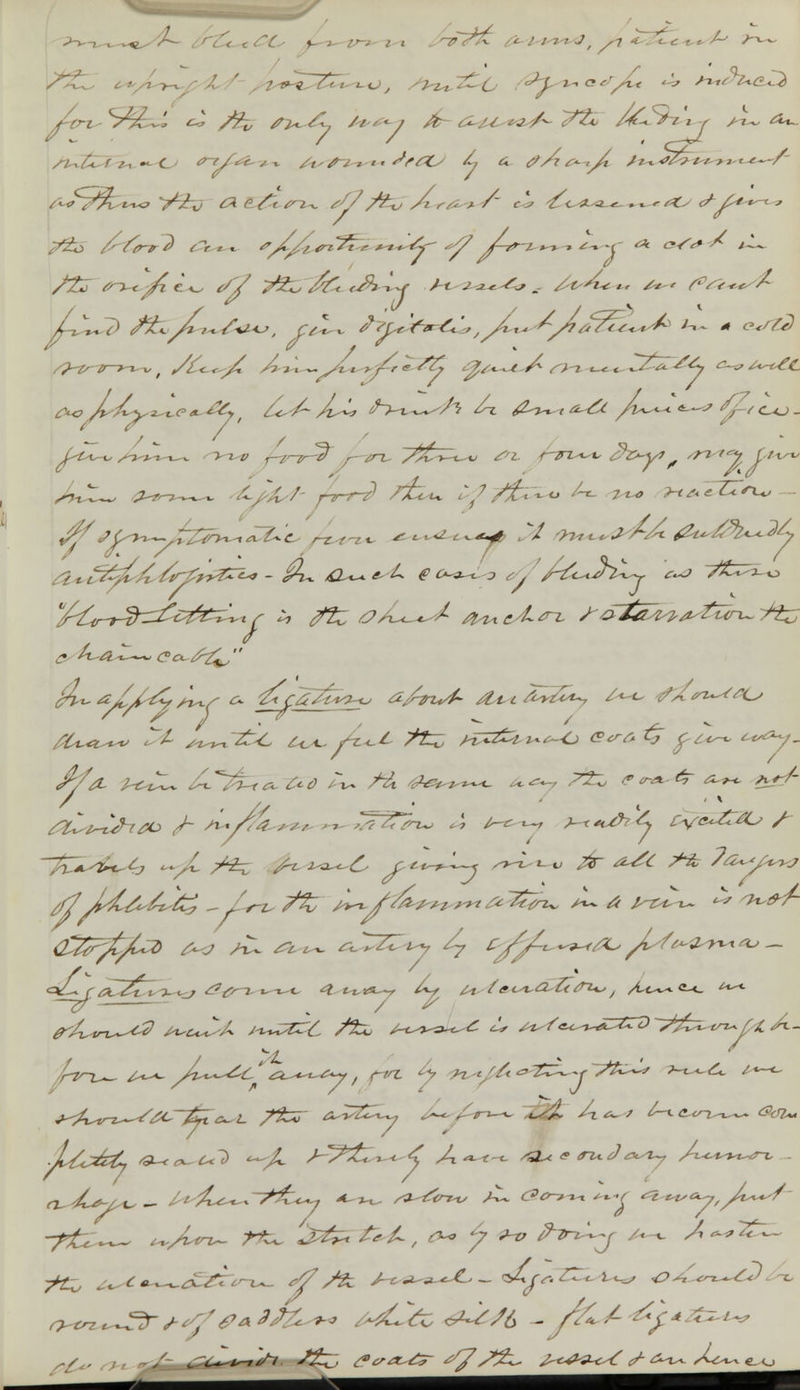 must bleed from both arms, patient in
the upright posture, until syncope is induced
for this is the only way to arrest the bleeding in an
internal organ wounded by a sharp instrument
as thus the action of the heart is lessened & gives
the blood an opportunity of forming a clot in
the orifice of the bleeding vessels. When we cant
find the pulse, give digitalis, put patient in a cold
room, Keep him perfectly quiet mentally as well
as physically, let his drink be small pieces of ice -
give him no food for three or four days, may give
him some light food then if there be no reaction -
If symptomatic fever ensues it must be subdued by
antiphlogistics - In such cases of bleeding as these
"blood-letting is the sheet anchor & starvation the
chain cable"
In applying a ligature about an artery we should
draw it until we feel the internal coats give way -
If a vein be treated in the same way the coats are not
divided & inflammation is very readily excited &
travels up the vessel giving rise to all the dangers
of phlebitis - for the inflammation in a vein is not
stopped as in an artery by effused plasma -
Ligatures come away by ulceration, hence we
should wait until the vessel is ulcerated through be-
fore we pull it away, for by neglecting this rule we
should tear the artery before it has become com
pletely sealed up & thereby have secondary hemor-
rhage - When they are slow in coming away, put
them upon the stretch, as by so doing we hasten
the ulceration of the vessel - Ligatures should be
round & of saddlers white silk - flat ligatures
do not divide the coats of the vessel & are hence